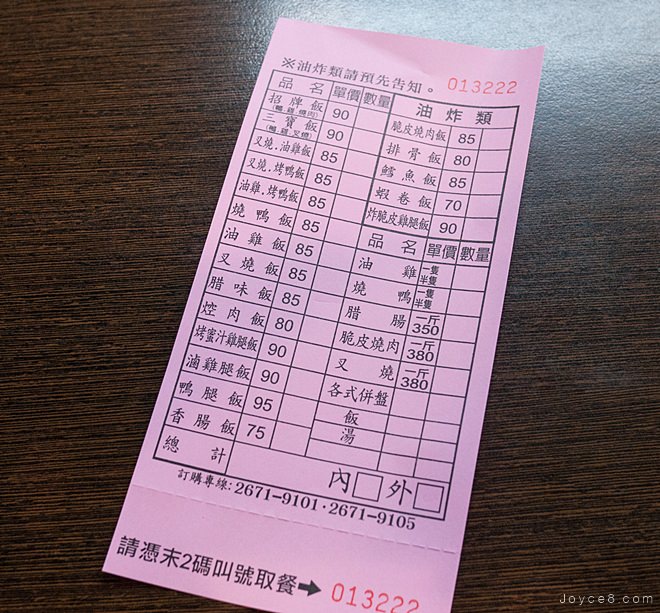 ※油炸類請預先告知。 013222
品名 單價 數量
招牌飯(鴨、雞、燒肉) 90
三寶飯(鴨、雞、叉燒) 90
叉燒.油雞飯 85
叉燒.烤鴨飯 85
油雞.烤鴨飯 85
燒鴨飯 85
油雞飯 85
叉燒飯 85
腊味飯 85
焢肉飯 80
烤蜜汁雞腿飯 90
滷雞腿飯 90
鴨腿飯 95
香腸飯 75
總計
油炸類
脆皮燒肉飯 85
排骨飯 80
鱈魚飯 85
蝦卷飯 70
炸脆皮雞腿飯 90
品名 單價 數量
油雞 一隻 半隻
燒鴨 一隻 半隻
腊腸 一斤 350
脆皮燒肉 一斤 380
叉燒 一斤 380
各式併盤
飯
湯
內□ 外□
訂購專線:2671-9101·2671-9105
請憑末2碼叫號取餐➡ 013222
Joyce8.com